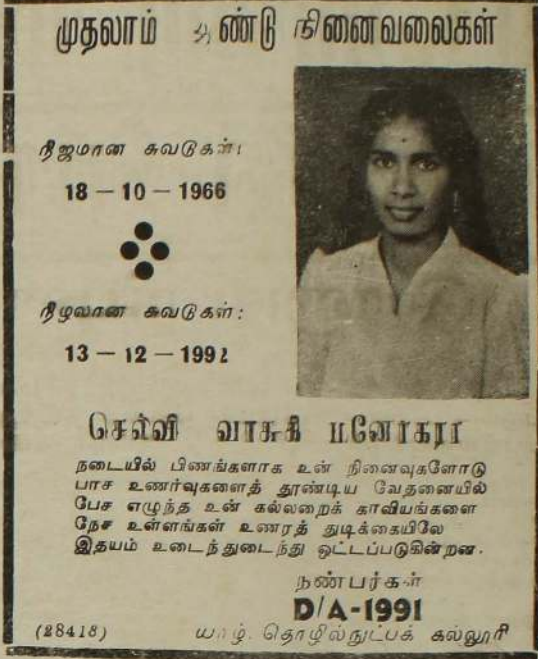 முதலாம் ஆண்டு நினைவலைகள்
நிஜமான சுவடுகள்:
18 — 10 — 1966
நிழலான சுவடுகள்:
13 — 12 — 1992
செல்வி வாசுகி மனோகரா
நடையில் பிணங்களாக உன் நினைவுகளோடு
பாச உணர்வுகளைத் தூண்டிய வேதனையில்
பேச எழுந்த உன் கல்லறைக் காவியங்களை
நேச உள்ளங்கள் உணரத் துடிக்கையிலே
இதயம் உடைந்துடைந்து ஒட்டப்படுகின்றன.
நண்பர்கள்
D/A-1991
(28418) யாழ். தொழில்நுட்பக் கல்லூரி